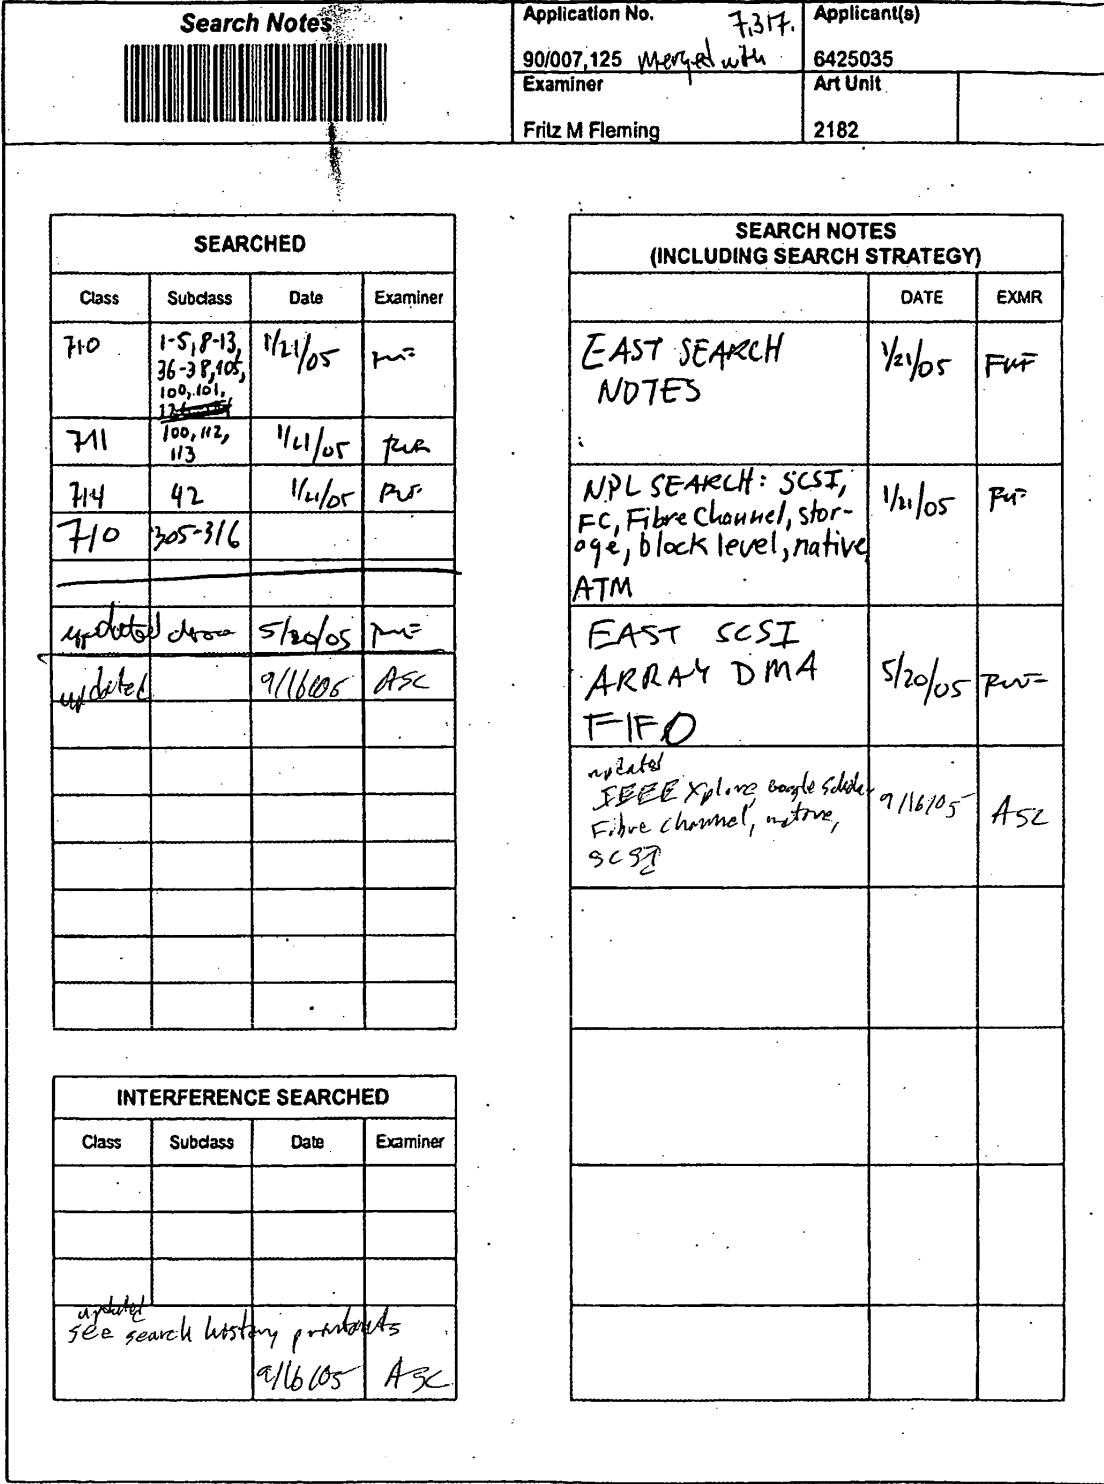 Search Notes
Application No.
7,317.
90/007,125 Merged with
Applicant(s)
6425035
Examiner
Fritz M Fleming
Art Unit
2182
SEARCHED
Class Subclass Date Examiner
710 1-5,8-13, 1/21/05 FMF
36-38,105,
100,101,
711 100,112, 1/21/05 FMF
113
714 42 1/21/05 FMF
710 305-316
updated above 5/20/05 FMF
updated 9/16/05 ASC
INTERFERENCE SEARCHED
Class Subclass Date Examiner
updated
see search history printouts
9/16/05 ASC
SEARCH NOTES
(INCLUDING SEARCH STRATEGY)
DATE EXMR
EAST SEARCH 1/21/05 FMF
NOTES
NPL SEARCH: SCSI, 1/21/05 FMF
FC, Fibre Channel, stor-
age, block level, native
ATM
EAST SCSI
ARRAY DMA 5/20/05 FMF
FIFO
updated
IEEE Xplore, Google Scholar 9/16/05 ASC
Fibre channel, native,
SCSI